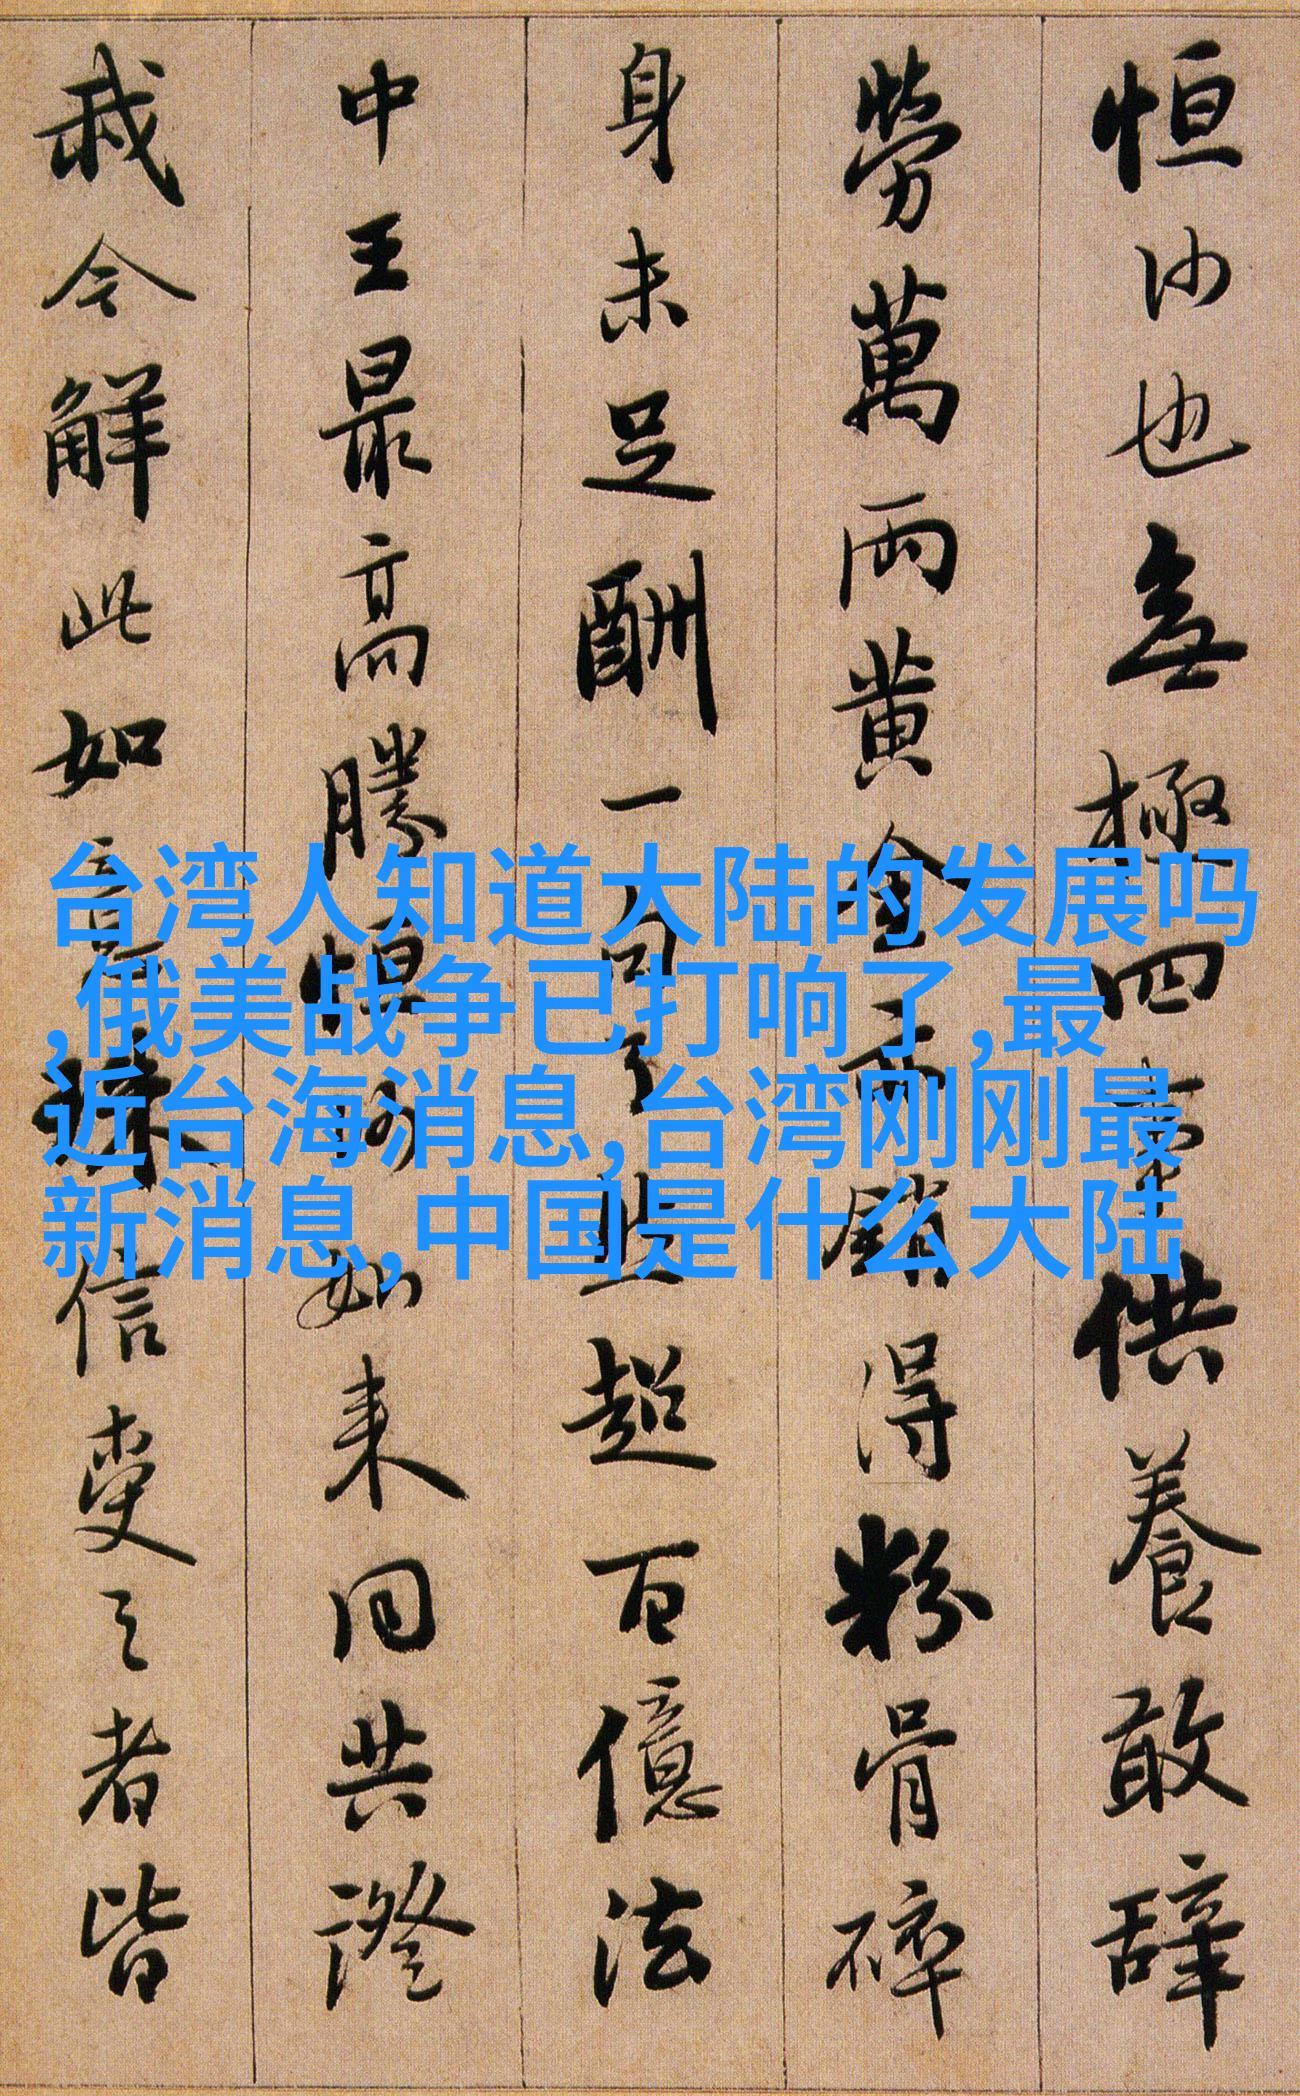 恒沙也無極四事供養敢辭
勞萬兩黃金亦銷得粉骨碎
身未足酬一句了然超百億法
中王最高勝恒沙如來同共證
我今解此如意珠信受之者皆
台湾人知道大陆的发展吗
,俄美战争已打响了,最
近台海消息,台湾刚刚最
新消息,中国是什么大陆